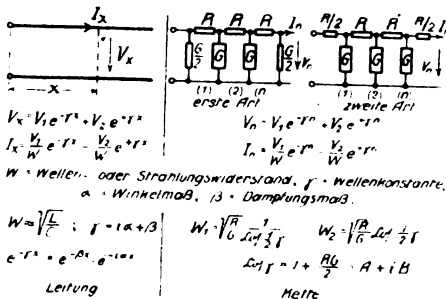 I_x
V_x
x
R R R I_n
G/2 G G G/2 V_n
(1) (2) (n)
erste Art
R/2 R R R/2
G G G V_n
(1) (2) (n)
zweite Art
V_x = V_1 e^{-γx} + V_2 e^{+γx}
I_x = V_1/W e^{-γx} - V_2/W e^{+γx}
V_n = V_1 e^{-γn} + V_2 e^{+γn}
I_n = V_1/W e^{-γn} - V_2/W e^{+γn}
W = Wellen- oder Strahlungswiderstand, γ = Wellenkonstante,
α = Winkelmaß, β = Dämpfungsmaß.
W = √(L/C) ; γ = iα + β
e^{-γx} = e^{-βx} · e^{-iαx}
Leitung
W_1 = √(R/G) 1/(Cof ½γ) W_2 = √(R/G) Cof ½γ
Cof γ = 1 + RG/2 = A + iB
Kette